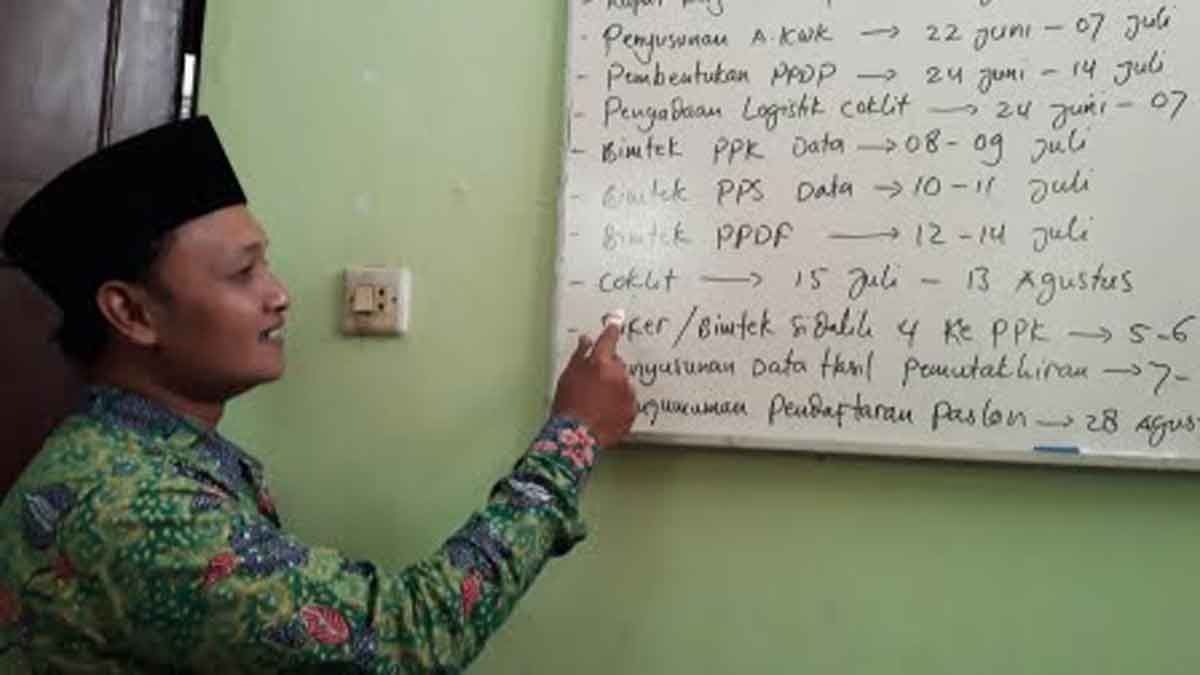 - Penyusunan A.KWK → 22 Juni - 07 Juli
- Pembentukan PPDP → 24 Juni - 14 Juli
- Pengadaan Logistik Coklit → 24 Juni - 07
- Bimtek PPK Data → 08 - 09 Juli
- Bimtek PPS Data → 10 - 11 Juli
- Bimtek PPDP → 12 - 14 Juli
- Coklit → 15 Juli - 13 Agustus
- /Bimtek Sidalih 4 Ke PPK → 5-6
nyusunan Data Hasil Pemutakhiran → 7-
ngumuman Pendaftaran Paslon → 28 Agus